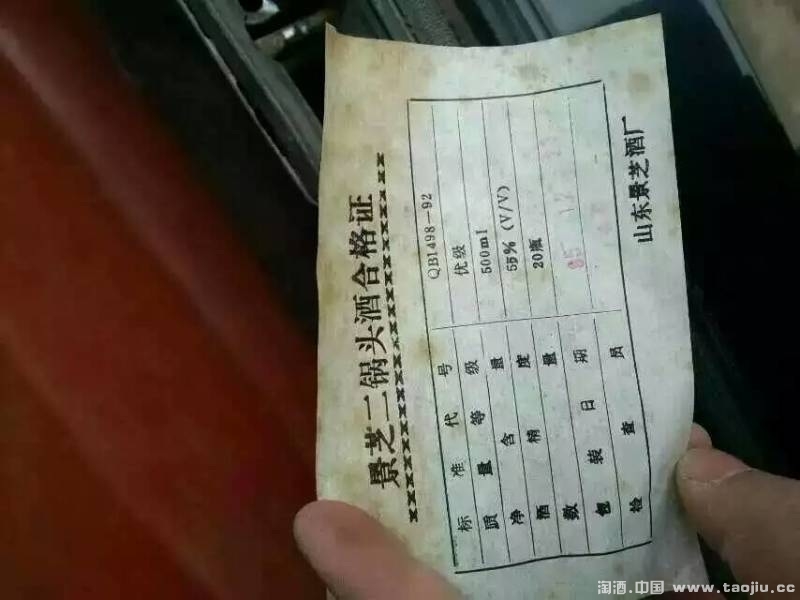 景芝二锅头酒合格证
××××××××××××××××××××××××
标准代号 QB1498—92
质量等级 优级
净含量 500ml
酒精度 55%(V/V)
数量 20瓶
包装日期 95 12
检查员
山东景芝酒厂
淘酒.中国 www.taojiu.cc